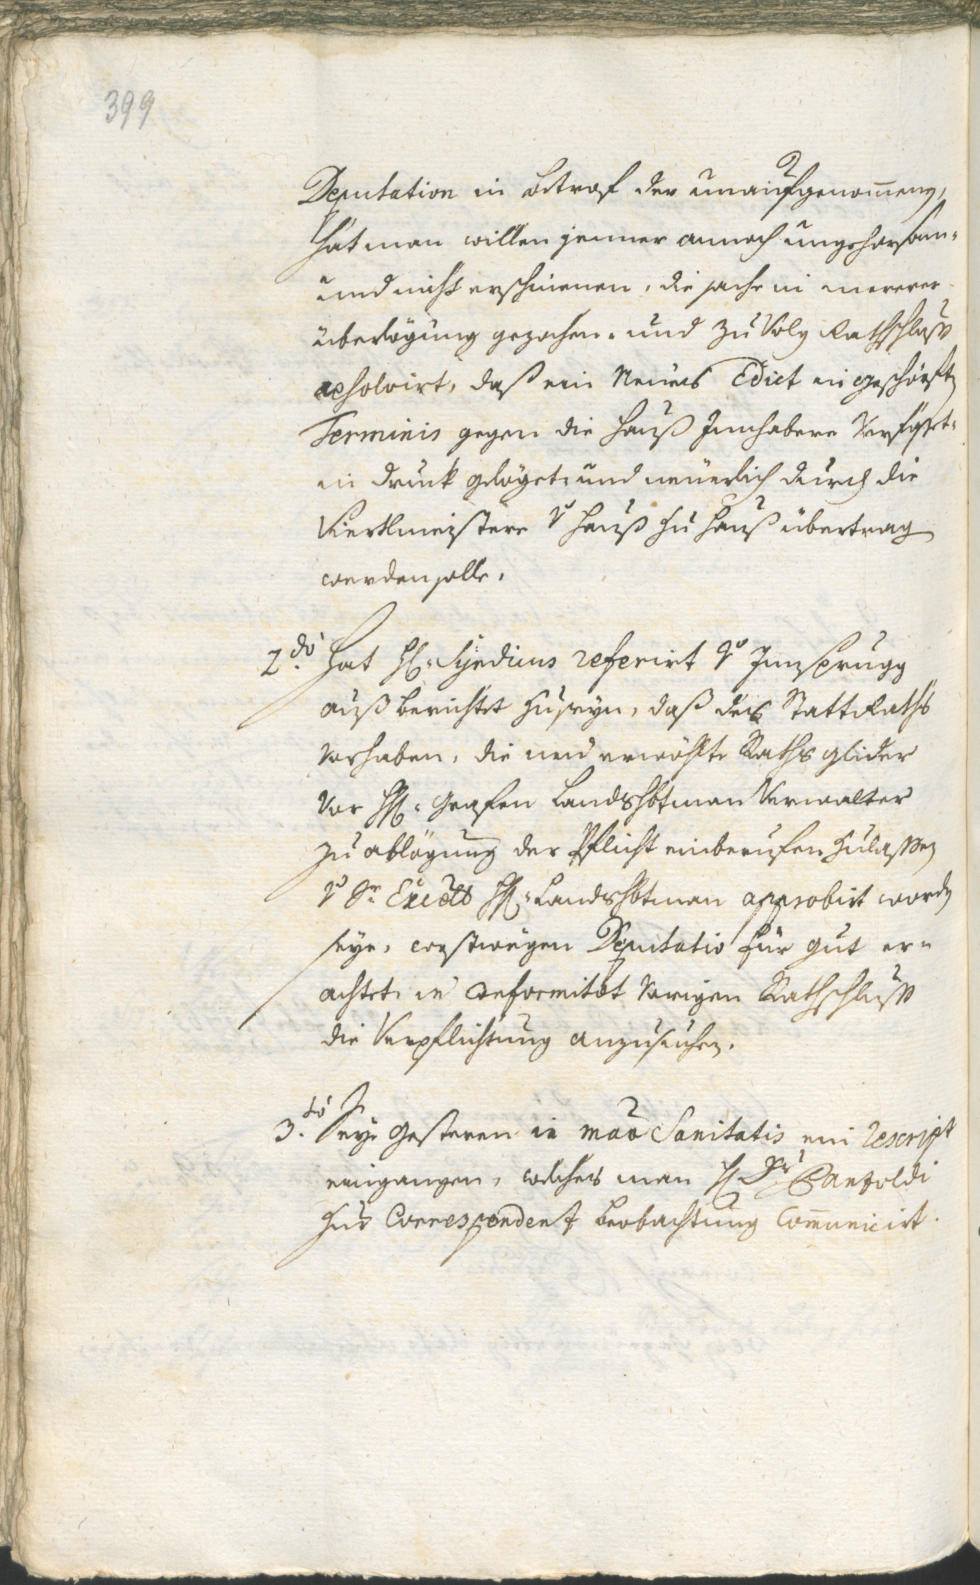 399
Deputation in Betref der unaufgenommeny,
hat man willen jenner annoch ungehorsam-
und nicht erschinenen, die sache in merere
überlögung gezochen. und zu Volg Rathschluss
resolvirt, daß ein Neües Edict in geschörfty
Terminis gegen die Hauß Innhabere Verfasst-
in druck gelögt. und neüerlich durch die
Viertlmeistere v Hauß zu Hauß übertrag
werden solle.
2.do Hat H: Syndicus referirt v Innsprugg
auß berichtet zuseyn, daß des Statt Raths
vorhaben, die neu erwöhlte Raths glider
vor H: Grafen Landshbtman Verwalter
zu ablögung der Pflicht einberufen zulassen
v Sr. Excell H: Landshbtman approbirt wordn
seye, westwegen Deputatio für gut er-
achtet. in Conformitet vorigen Rathschluss
die Verpflichtung anzusuchen.
3.tio Seye Gesteren in mat Sanitatis ein Rescript
eingangen, welches man H Dr
zur Correspondent beobachtung Communicirt.